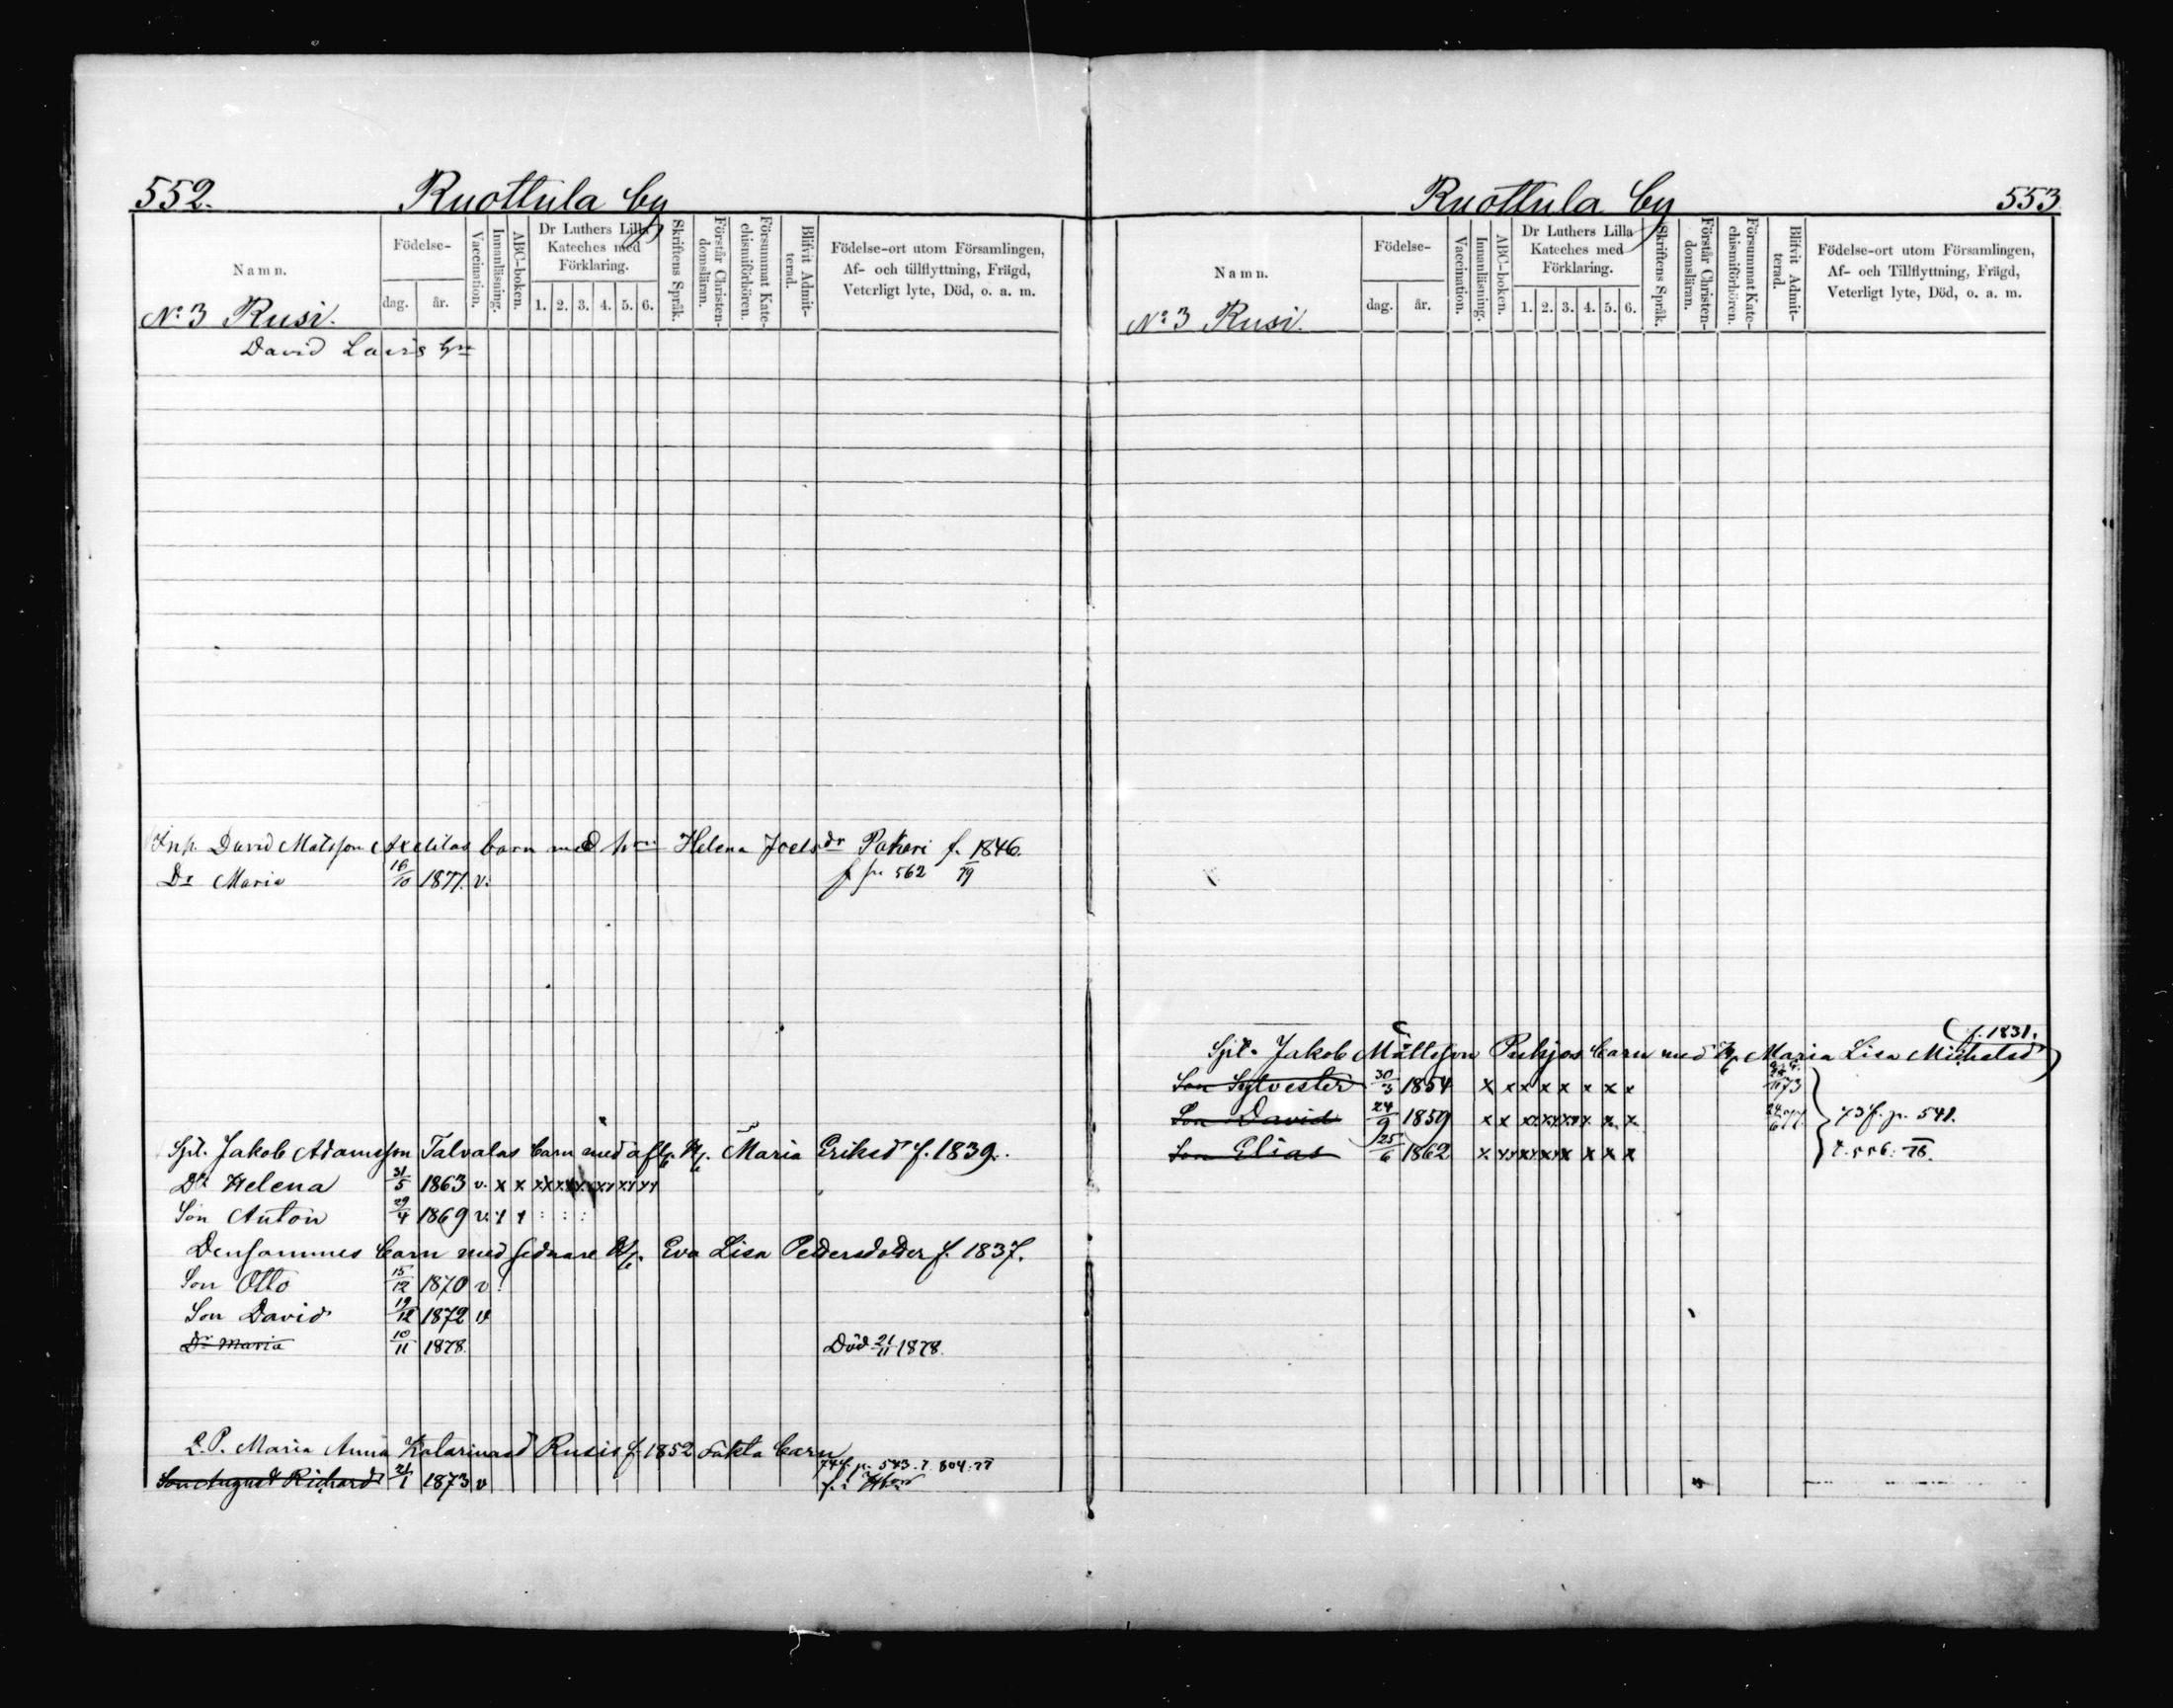 552. Ruottula by
Namn. Födelse- dag. år. Vaccination. Innanläsning. ABC-boken. Dr Luthers Lilla Kateches med Förklaring. 1. 2. 3. 4. 5. 6. Skriftens Språk. Förstår Christendomsläran. Försummat Katechismiförhören. Blifvit Admitterad. Födelse-ort utom Församlingen, Af- och tillflyttning, Frägd, Veterligt lyte, Död, o. a. m.
No 3 Rusi.
David Lauris
Inh. David Matsson Axelilas barn med hru Helena Joelsdr Pakari f. 1846.
Dr Maria 16/10 1877. v. f. p. 562 79
Spl. Jakob Adamsson Talvalas barn med afl. H. Maria Eriksdr f. 1839.
Dr Helena 31/5 1863 v. x x xx xx xx xx xx xx
Son Anton 29/4 1869 v. x x : : :
Densammes barn med sednare H. Eva Lisa Pettersdoter f. 1837.
Son Otto 15/12 1870 v.
Son David 19/12 1872 v
Dr Maria 10/11 1878. Död 21/11 1878.
L.P. Maria Anna Katarinasd Rusis f. 1852 oäkta barn
74 f. p. 543. t. 804: 77
Son August Richard 21/1 1873 v
Ruottula by 553
Namn. Födelse- dag. år. Vaccination. Innanläsning. ABC-boken. Dr Luthers Lilla Kateches med Förklaring. 1. 2. 3. 4. 5. 6. Skriftens Språk. Förstår Christendomsläran. Försummat Katechismiförhören. Blifvit Admitterad. Födelse-ort utom Församlingen, Af- och Tillflyttning, Frägd, Veterligt lyte, Död, o. a. m.
No 3 Rusi.
f. 1831.
Spl. Jakob Mattsson Puhjos barn med H. Maria Lisa Michelsdr
Son Sylvester 30/3 1854 x x x x x x x x 73
Son David 24/9 1859 x x xx xx xx x x x 73 f. p. 541.
Son Elias 25/6 1862 x xx xx xx x x x t. 556: 78.